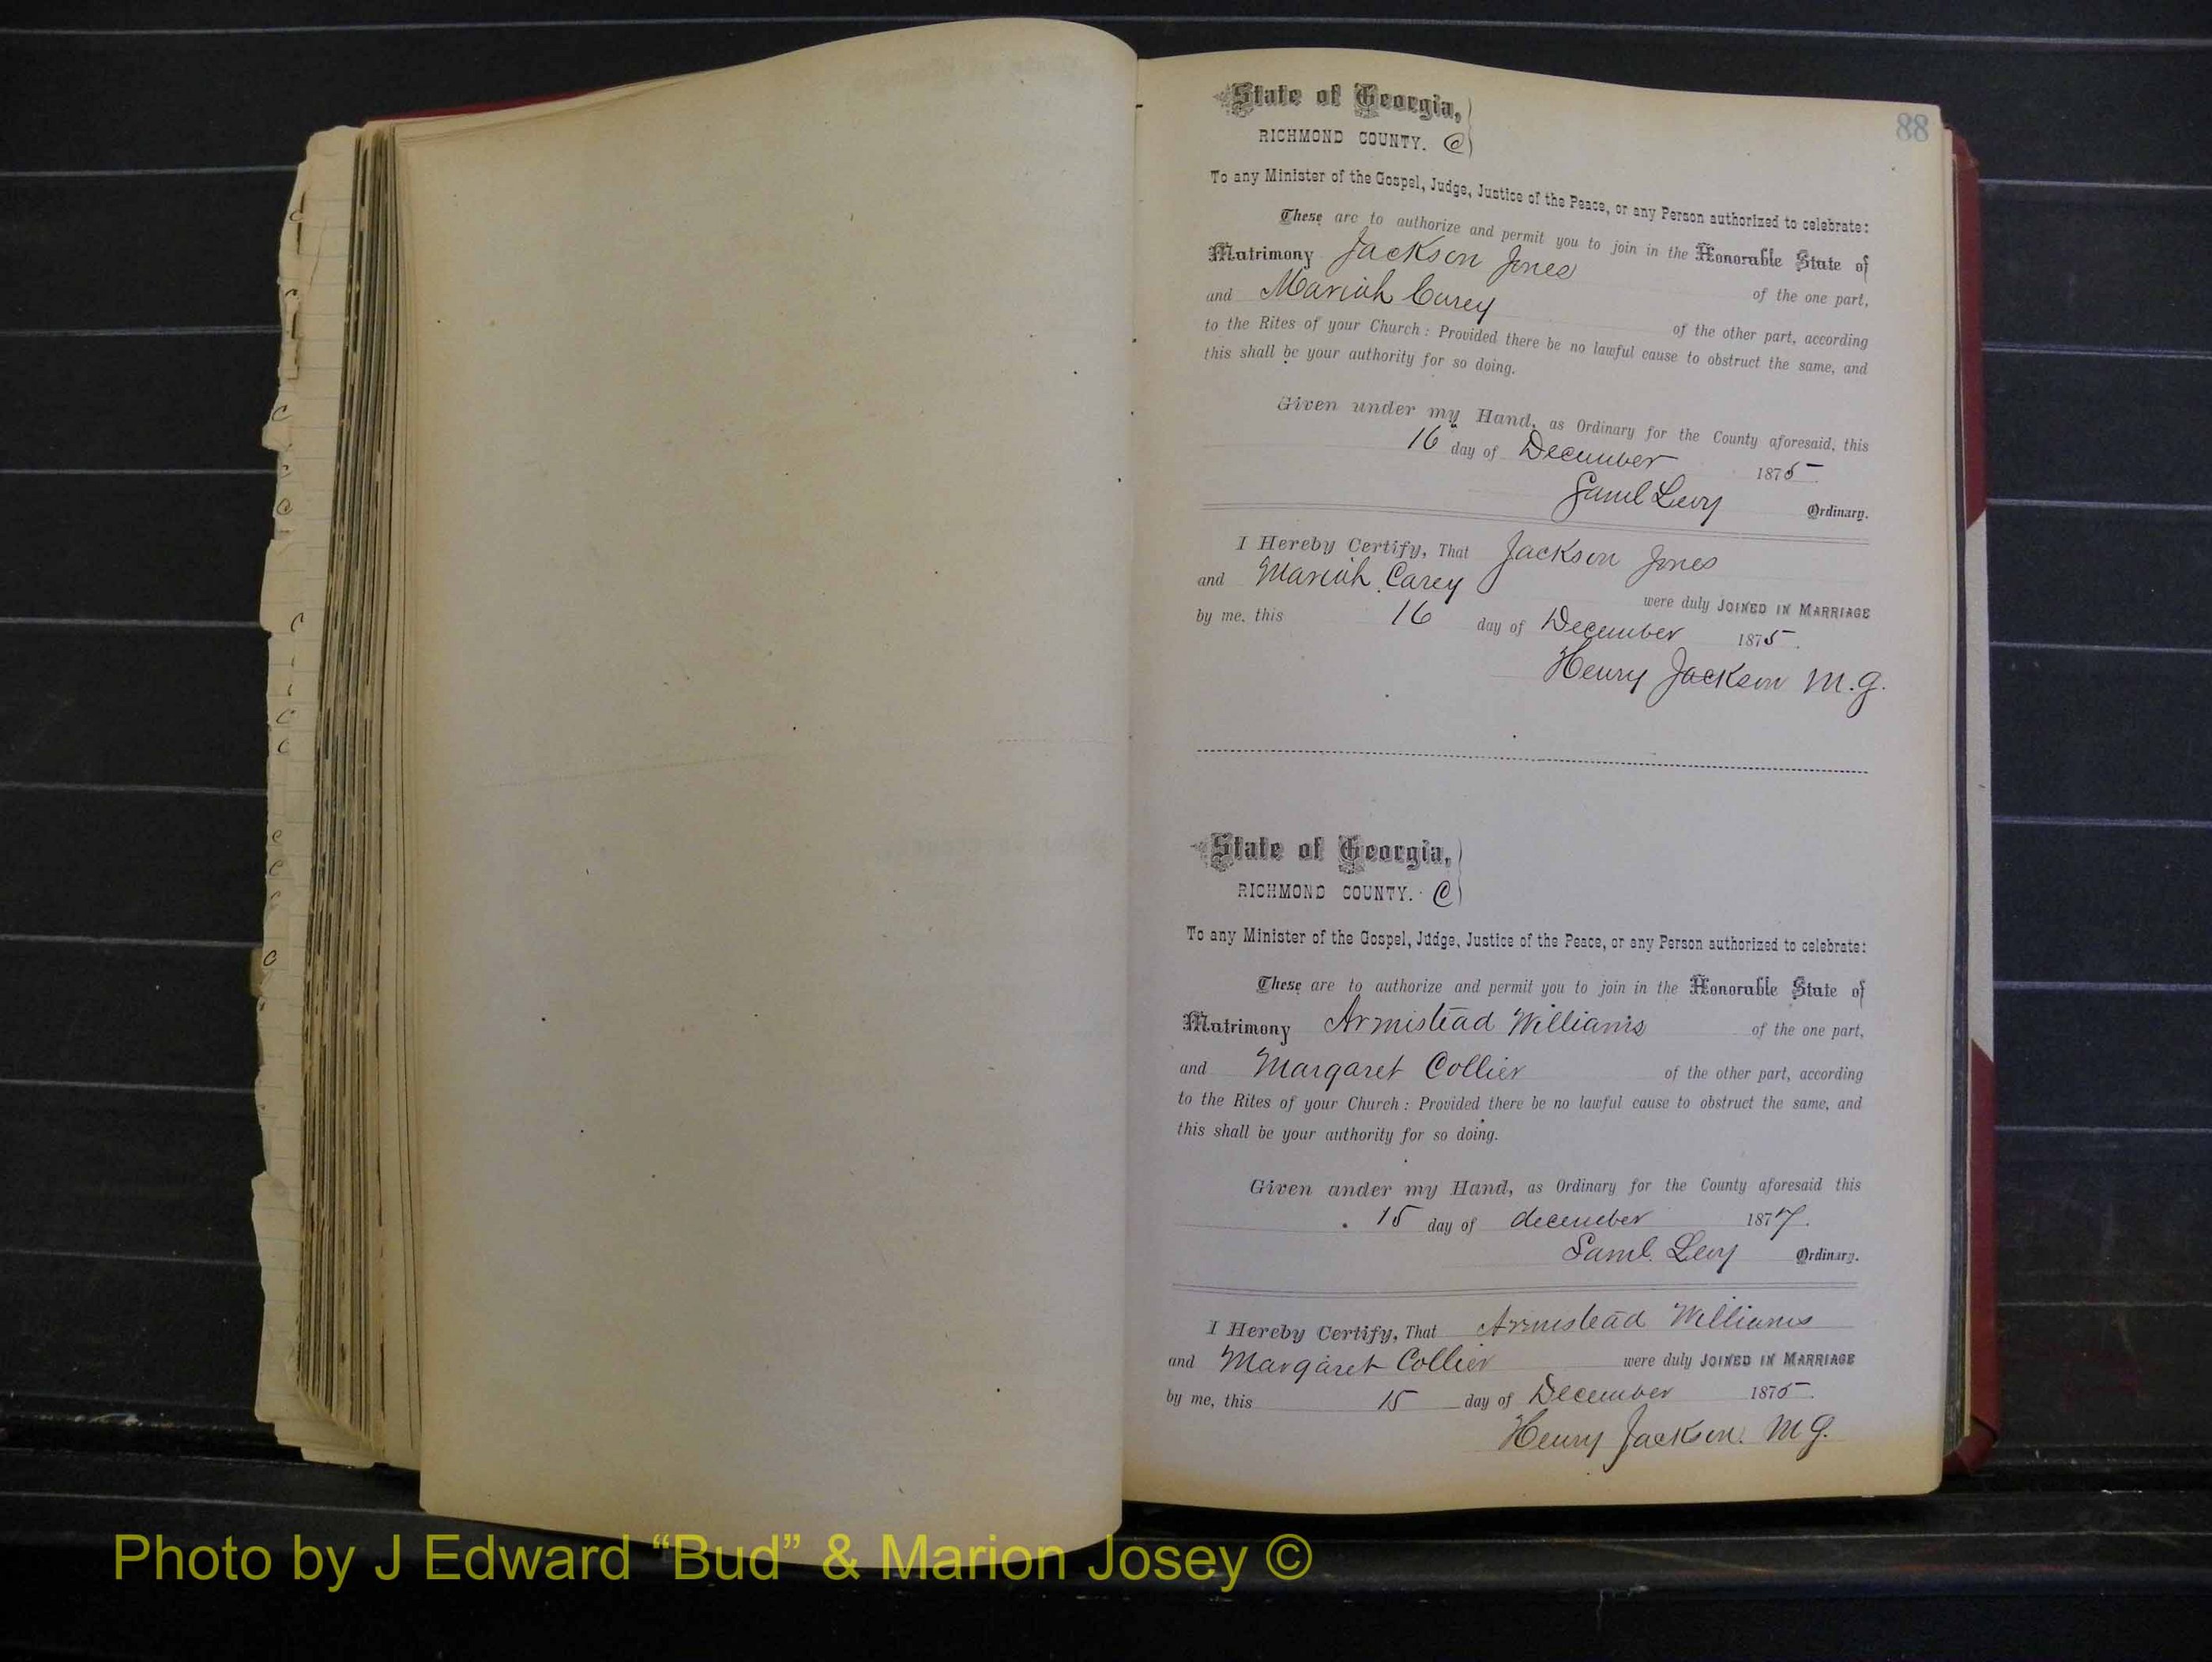 88
State of Georgia,
RICHMOND COUNTY. C
To any Minister of the Gospel, Judge, Justice of the Peace, or any Person authorized to celebrate:
These are to authorize and permit you to join in the Honorable State of
Matrimony Jackson Jones of the one part,
and Mariah Carey of the other part, according
to the Rites of your Church: Provided there be no lawful cause to obstruct the same, and
this shall be your authority for so doing.
Given under my Hand, as Ordinary for the County aforesaid, this
16 day of December 1875.
Saml Levy Ordinary.
I Hereby Certify, That Jackson Jones
and Mariah Carey were duly JOINED IN MARRIAGE
by me, this 16 day of December 1875.
Henry Jackson M.G.
State of Georgia,
RICHMOND COUNTY. C
To any Minister of the Gospel, Judge, Justice of the Peace, or any Person authorized to celebrate:
These are to authorize and permit you to join in the Honorable State of
Matrimony Armistead Williams of the one part,
and Margaret Collier of the other part, according
to the Rites of your Church: Provided there be no lawful cause to obstruct the same, and
this shall be your authority for so doing.
Given under my Hand, as Ordinary for the County aforesaid this
15 day of december 1877.
Saml. Levy Ordinary.
I Hereby Certify, That Armistead Williams
and Margaret Collier were duly JOINED IN MARRIAGE
by me, this 15 day of December 1875.
Henry Jackson. M G.
Photo by J Edward “Bud” & Marion Josey ©